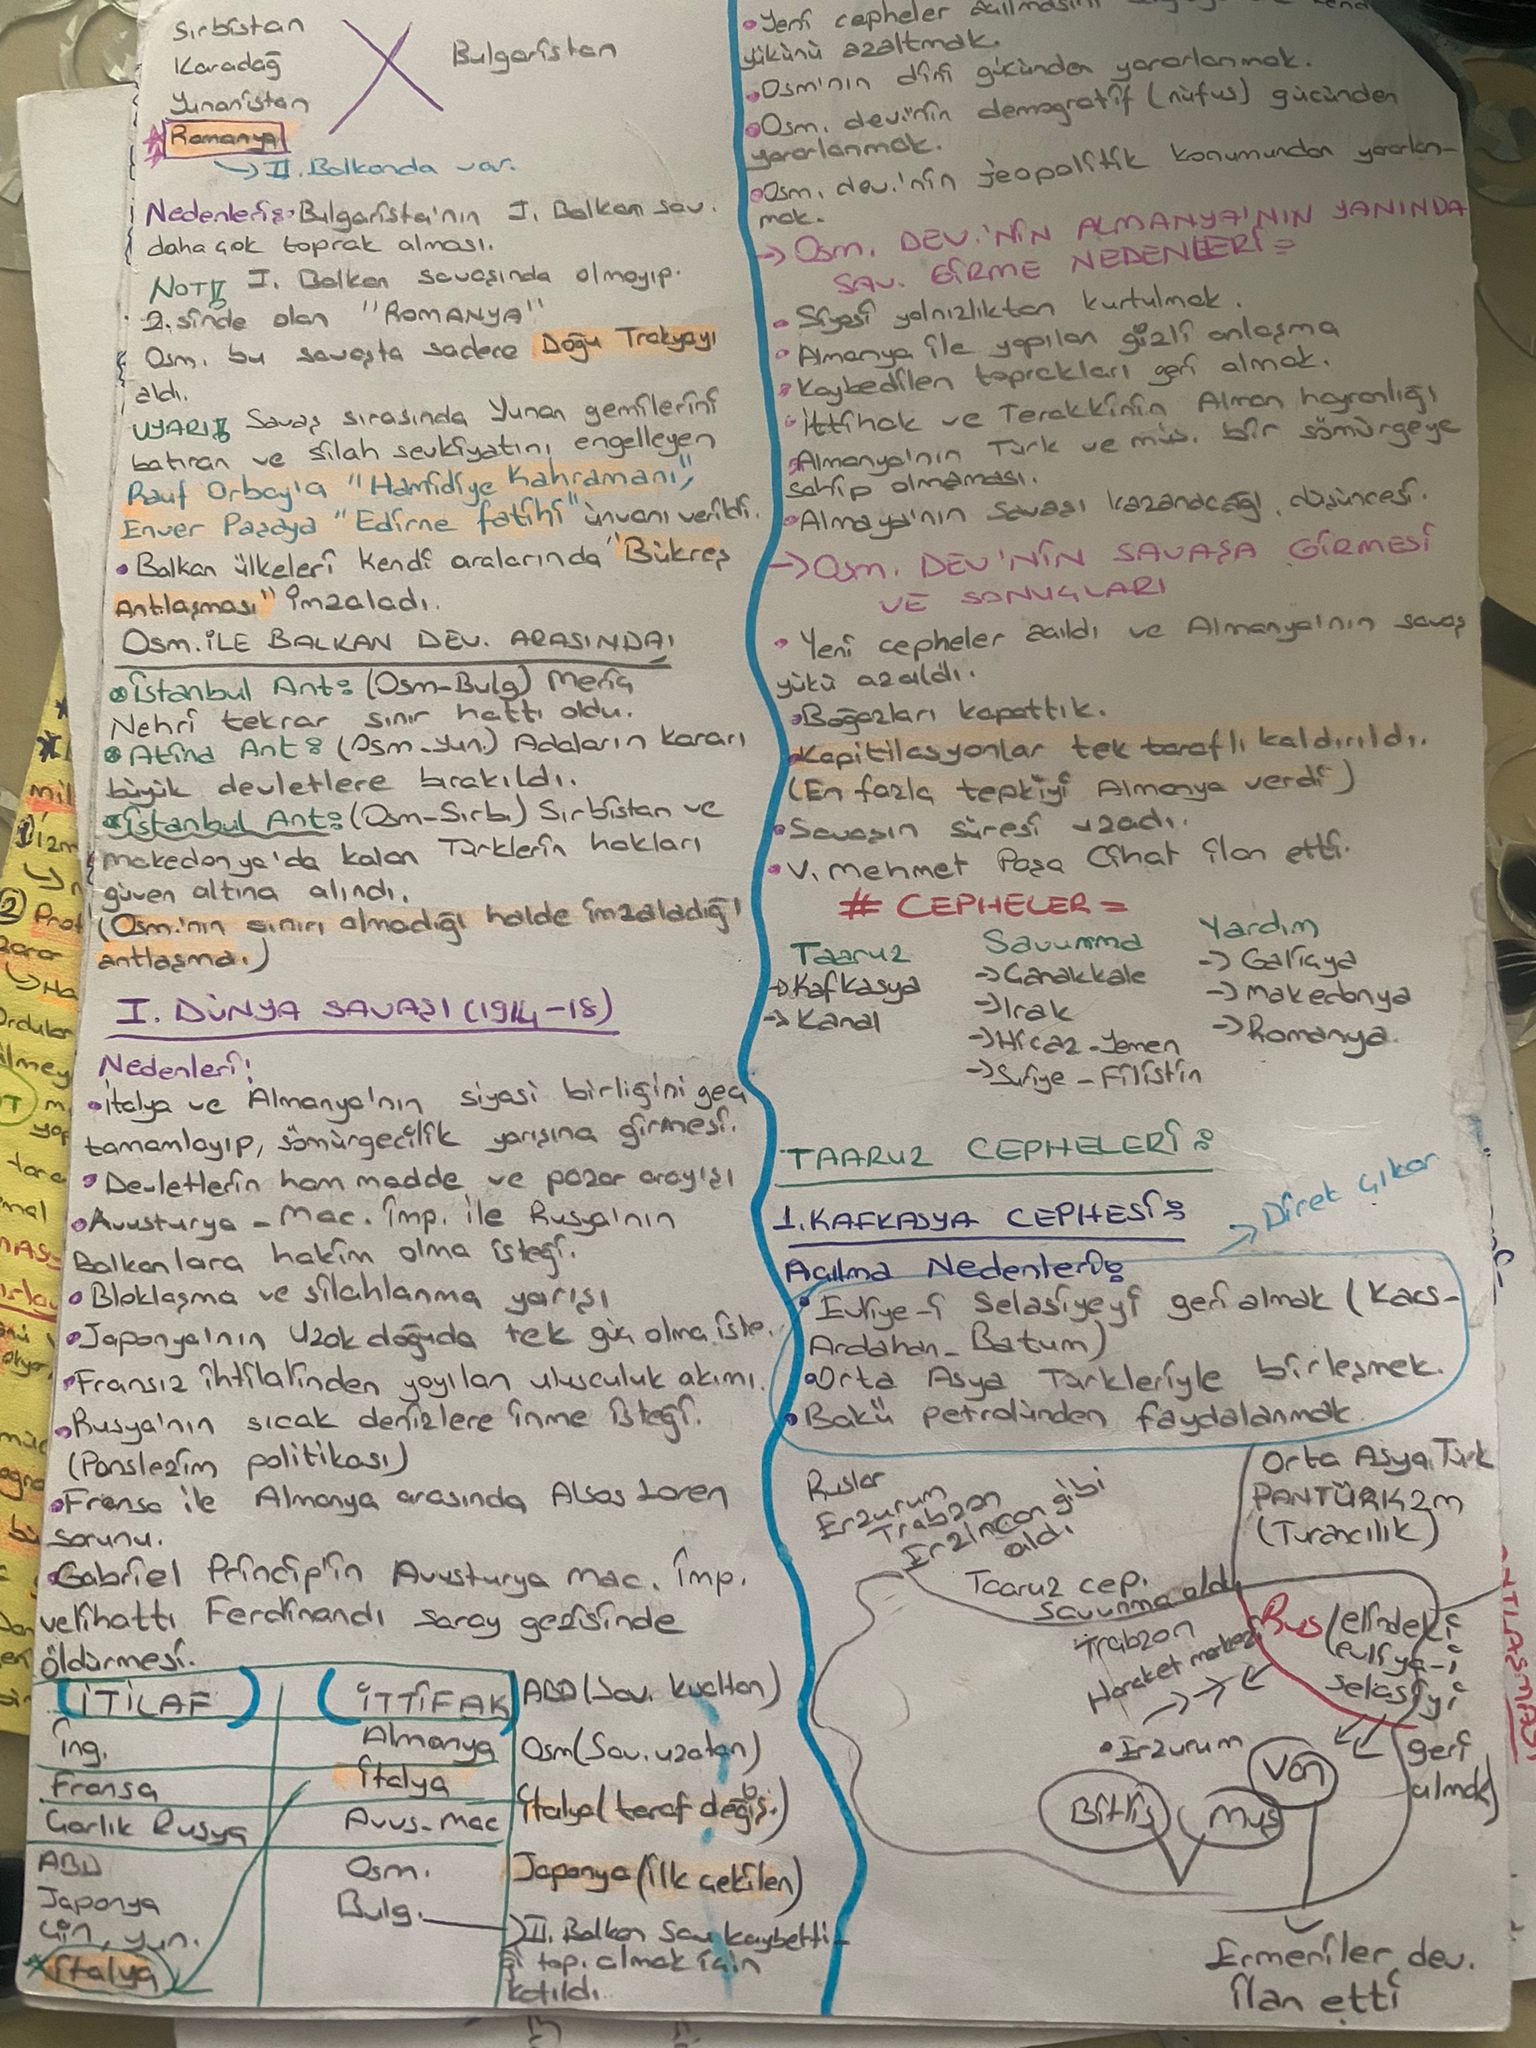 Sırbistan
Karadağ
Yunanistan
Romanya
Bulgaristan
→ II. Balkanda var.
Nedenleri: Bulgarista'nın I. Balkan sav.
daha çok toprak alması.
NOT!! I. Balkan savaşında olmayıp.
2. sinde olan "ROMANYA"
Osm. bu savaşta sadece Doğu Trakyayı
aldı.
UYARI!! Savaş sırasında Yunan gemilerini
batıran ve silah sevkiyatını engelleyen
Rauf Orbay'a "Hamidiye Kahramanı",
Enver Paşaya "Edirne fatihi" ünvanı verildi.
• Balkan ülkeleri kendi aralarında "Bükreş
Antlaşması" imzaladı.
OSM. İLE BALKAN DEV. ARASINDA;
• İstanbul Ant: (Osm-Bulg) Meriç
Nehri tekrar sınır hattı oldu.
• Atina Ant: (Osm-Yun.) Adaların kararı
büyük devletlere bırakıldı.
• İstanbul Ant: (Osm-Sırb) Sırbistan ve
Makedonya'da kalan Türklerin hakları
güven altına alındı.
(Osm.'nın sınırı olmadığı halde imzaladığı
antlaşma.)
I. DÜNYA SAVAŞI (1914-18)
Nedenleri;
• İtalya ve Almanya'nın siyasi birliğini geç
tamamlayıp, sömürgecilik yarışına girmesi.
• Devletlerin ham madde ve pazar arayışı
• Avusturya - Mac. İmp. ile Rusya'nın
Balkanlara hakim olma isteği.
• Bloklaşma ve silahlanma yarışı
• Japonya'nın Uzak doğuda tek güç olma iste.
• Fransız ihtilalinden yayılan ulusculuk akımı.
• Rusya'nın sıcak denizlere inme isteği.
(Panslezim politikası)
• Fransa ile Almanya arasında Alsas Loren
sorunu.
• Gabriel Princip'in Avusturya Mac. İmp.
velihattı Ferdinandı saray gezisinde
öldürmesi.
(İTİLAF) (İTTİFAK)
İng. Almanya
Fransa İtalya
Çarlık Rusya Avus-Mac
ABD Osm.
Japonya Bulg.
Çin, Yun.
* İtalya
ABD (Sav. kısaltan)
Osm (Sav. uzatan)
İtalya (taraf değiş.)
Japonya (ilk çekilen)
→ II. Balkan Sav kaybetti-
ği top. almak için
katıldı.
• Yeni cepheler açılmasını
yükünü azaltmak.
• Osm'nın dini gücünden yararlanmak.
• Osm. dev.'nin demografif (nüfus) gücünden
yararlanmak.
• Osm. dev.'nin jeopolitik konumundan yararlan-
mak.
→ OSM. DEV.'NİN ALMANYA'NIN YANINDA
SAV. GİRME NEDENLERİ =
• Siyasi yalnızlıktan kurtulmak.
• Almanya ile yapılan gizli anlaşma
• Kaybedilen toprakları geri almak.
• İttihak ve Terakkinin Alman hayranlığı
• Almanya'nın Türk ve müs. bir sömürgeye
sahip olmaması.
• Almaya'nın savaşı kazanacağı düşüncesi.
→ OSM. DEV'NİN SAVAŞA GİRMESİ
VE SONUÇLARI
• Yeni cepheler açıldı ve Almanya'nın savaş
yükü azaldı.
• Boğazları kapattık.
• Kapitilasyonlar tek taraflı kaldırıldı.
(En fazla tepkiyi Almanya verdi)
• Savaşın süresi uzadı.
• V. Mehmet Paşa Cihat ilan etti.
# CEPHELER =
Taaruz Savunma Yardım
→ Kafkasya → Çanakkale → Galiçya
→ Kanal → Irak → Makedonya
→ Hicaz - Yemen → Romanya.
→ Suriye - Filistin
TAARUZ CEPHELERİ:
1. KAFKASYA CEPHESİ:
→ Diret çıkar
Açılma Nedenleri:
• Evliye-i Selasiyeyi geri almak (Kars-
Ardahan- Batum)
• Orta Asya Türkleriyle birleşmek.
• Bakü petrolünden faydalanmak.
Ruslar
Erzurum
Trabzon
Erzincan gibi
aldı
Orta Asya Türk
PANTÜRKİZM
(Turancılık)
Taaruz cep.
Savunma oldu
Trabzon
Hareket merkezi
Rus (elindeki
evliya-i
selasiyi
geri
almak)
• Erzurum
Van
Bitlis
Muş
Ermeniler dev.
ilan etti